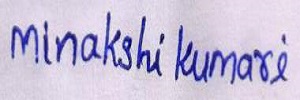 minakshi kumari